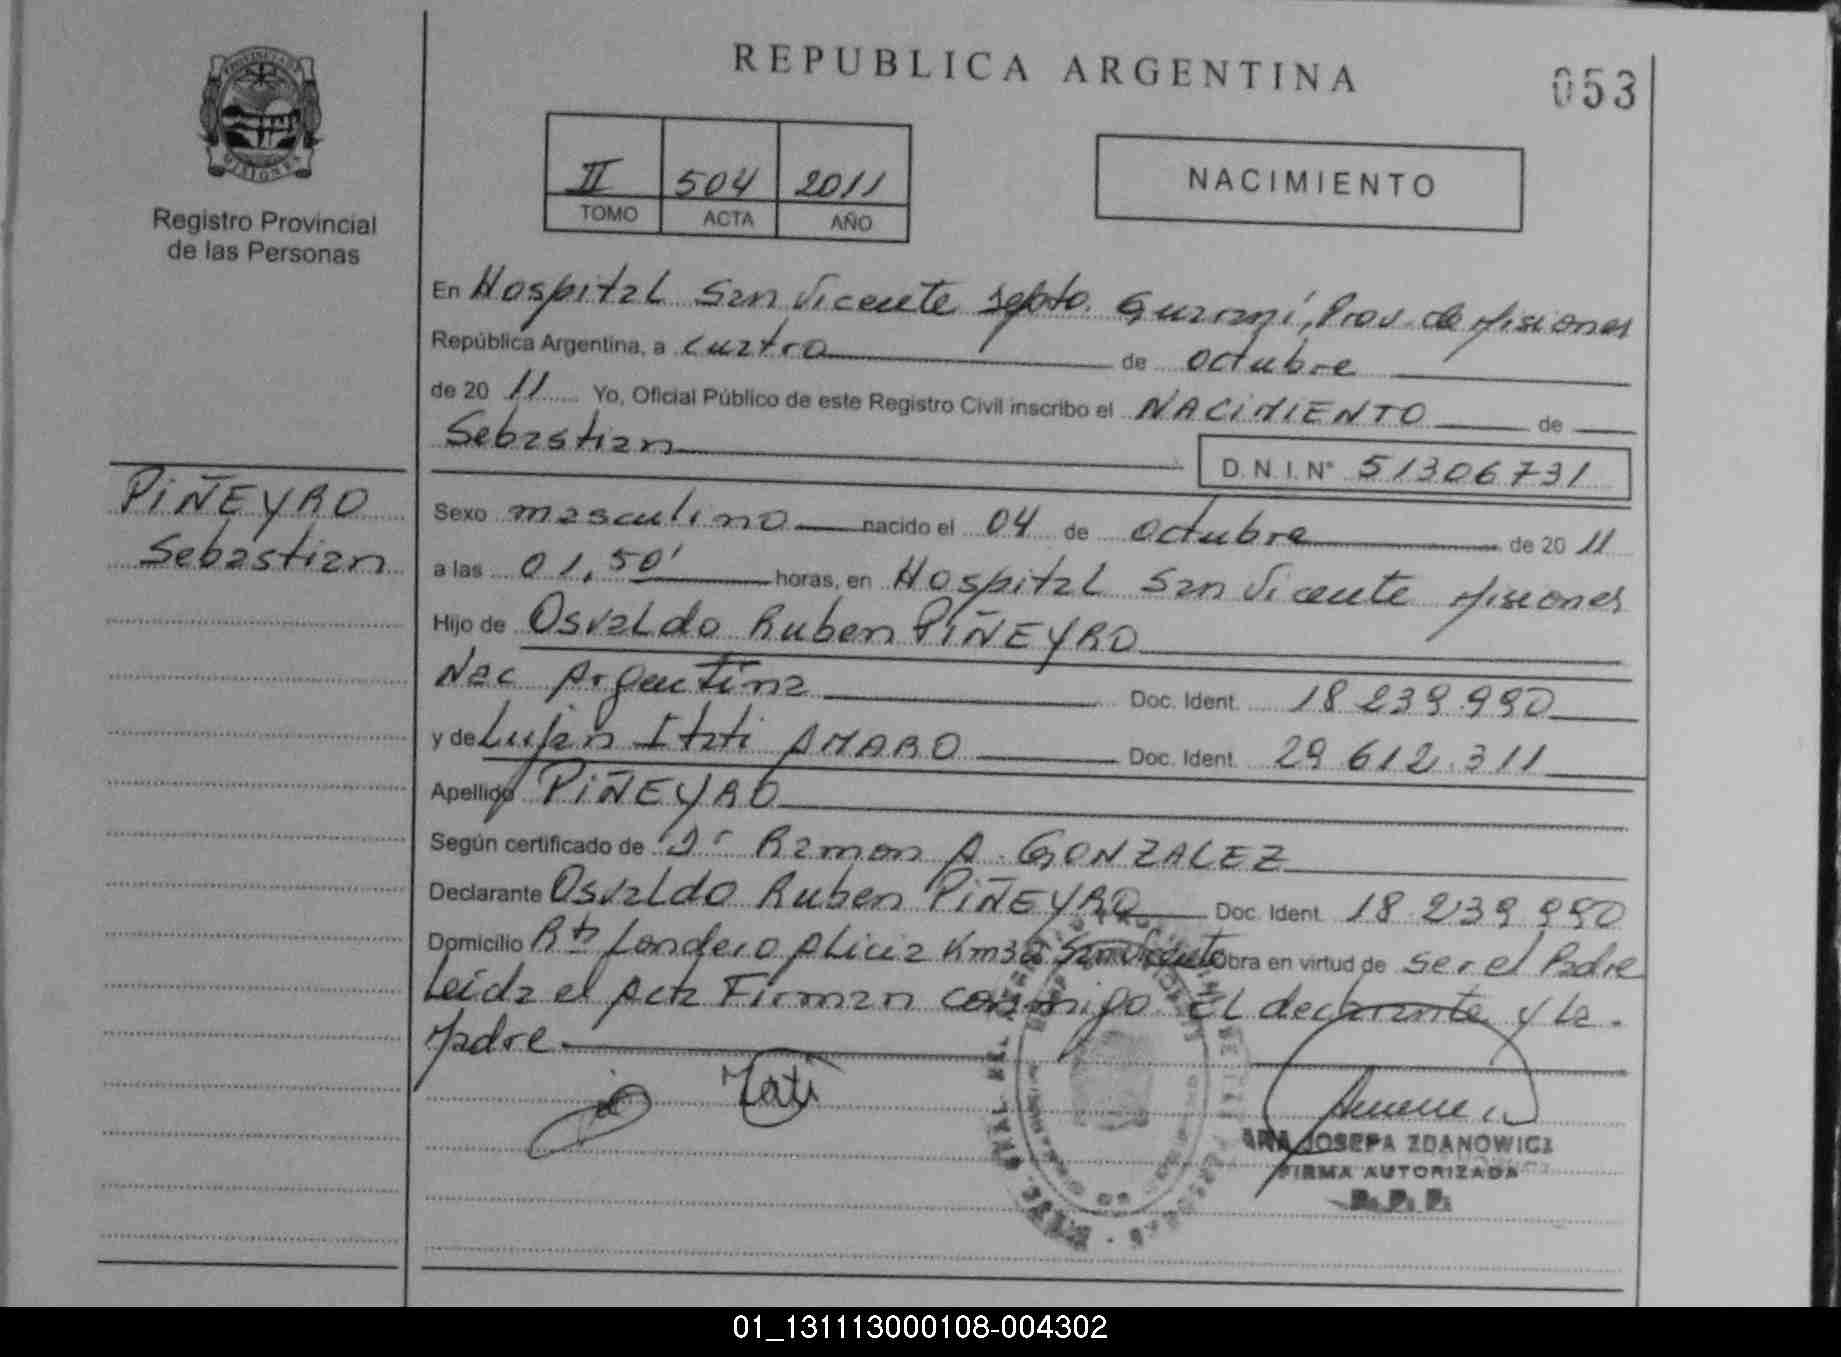 REPUBLICA ARGENTINA
053
PROVINCIA DE MISIONES
Registro Provincial
de las Personas
II 504 2011
TOMO ACTA AÑO
NACIMIENTO
En Hospital San Vicente Depto. Guaraní, Prov. de Misiones
República Argentina, a cuatro de octubre
de 20 11 Yo, Oficial Público de este Registro Civil inscribo el NACIMIENTO de
Sebastian
D.N.I. Nº 51306731
PIÑEYRO
Sebastian
Sexo masculino nacido el 04 de octubre de 20 11
a las 01,50' horas, en Hospital San Vicente Misiones
Hijo de Osvaldo Ruben PIÑEYRO
Nac Argentina Doc. Ident. 18 239.990
y de Lujan Itati AMARO Doc. Ident. 29 612.311
Apellido PIÑEYRO
Según certificado de Dr Ramon A. GONZALEZ
Declarante Osvaldo Ruben PIÑEYRO Doc. Ident. 18 239 990
Domicilio Londero Alicia Km San Vicente Obra en virtud de ser el Padre
Leida el Acta Firman conmigo El declarante y la
Madre
Itati
ANA JOSEFA ZDANOWICZ
FIRMA AUTORIZADA
R.P.P.
01_131113000108-004302